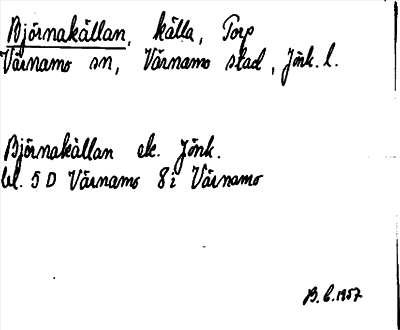 Björnakällan, källa, Torp
Värnamo sn, Värnamo stad, Jönk. l.
Björnakällan ek. Jönk.
bl. 5 D Värnamo 8 i Värnamo
B. E. 1957